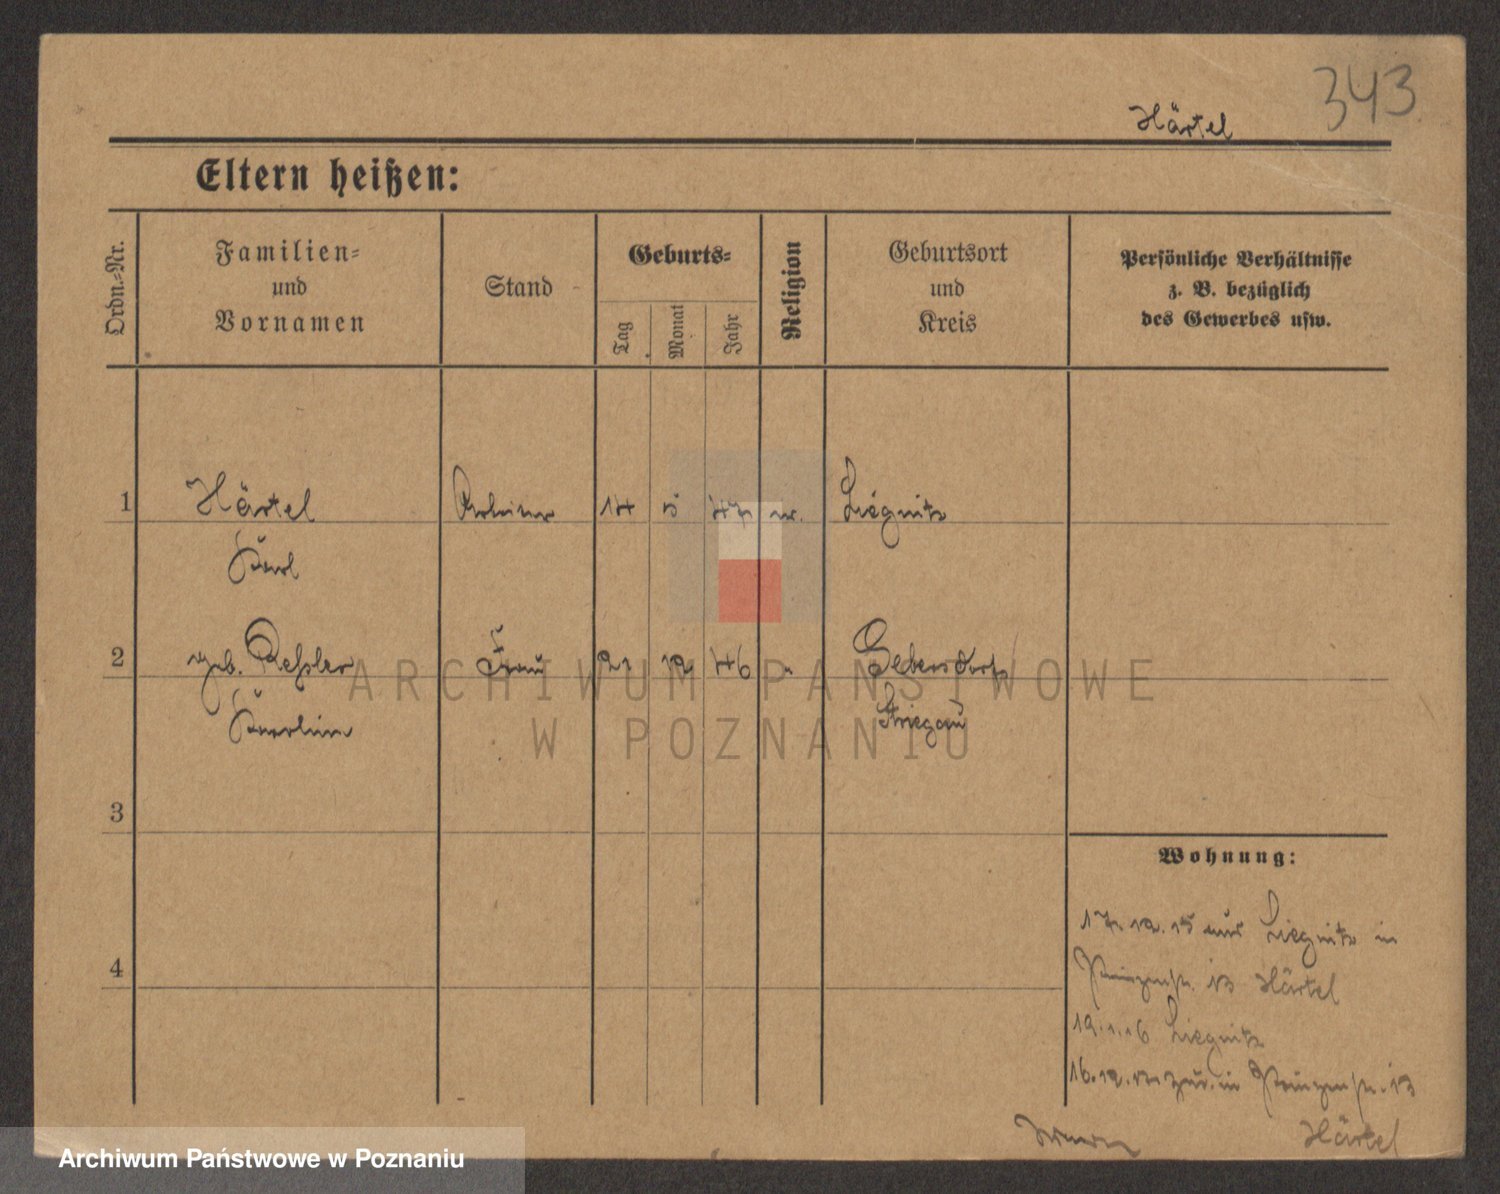 343
Härtel
Eltern heißen:
Ordn.-Nr.
Familien-
und
Vornamen
Stand
Geburts-
Tag
Monat
Jahr
Religion
Geburtsort
und
Kreis
Persönliche Verhältnisse
z. B. bezüglich
des Gewerbes usw.
1 Härtel 14 5 47 Liegnitz
Karl
2 geb. Frau 21 12 46 Gebersdorf
Karoline Striegau
3
4
Wohnung:
17.12.15 aus Liegnitz in
Prinzenstr. 13 Härtel
19.1.16 Liegnitz
16.12. zur. in Prinzenstr. 13
Härtel
ARCHIWUM PAŃSTWOWE
W POZNANIU
Archiwum Państwowe w Poznaniu